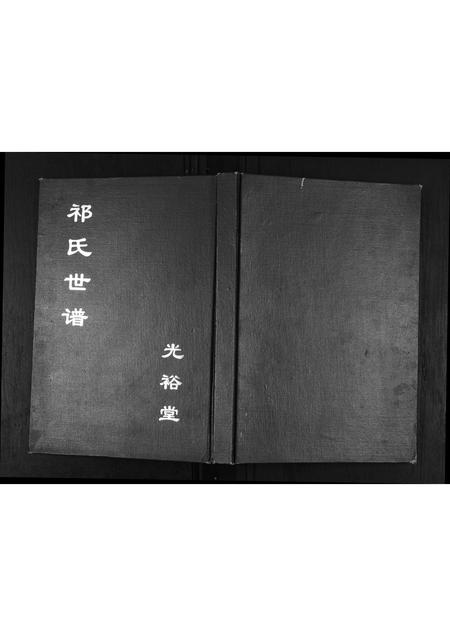 祁氏世谱
光裕堂